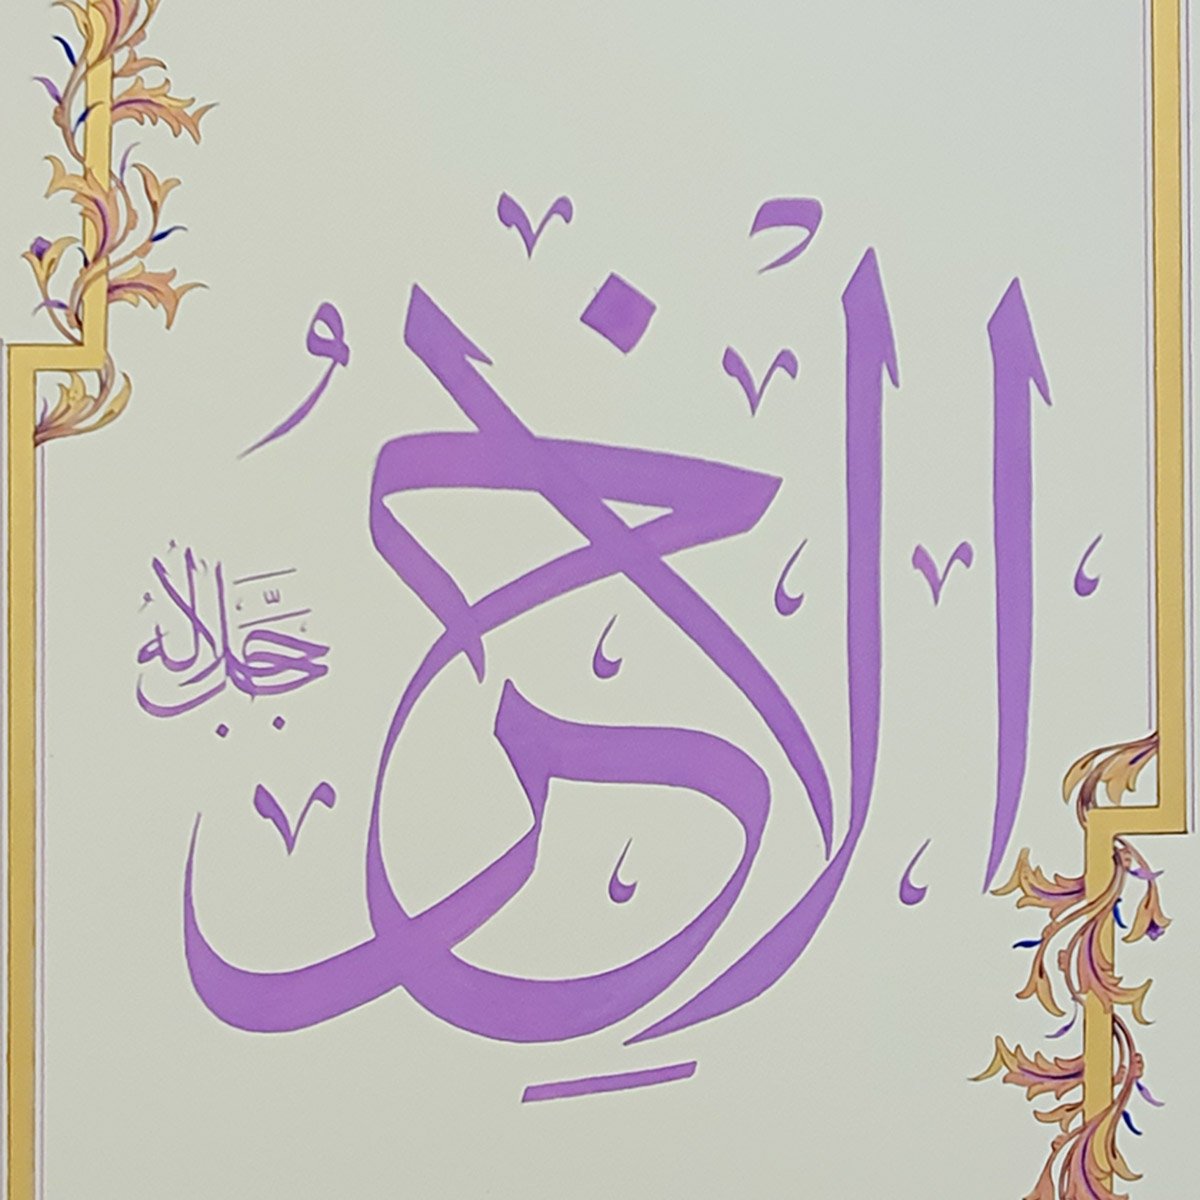 الآخِرُ
جَلَّ جلاله